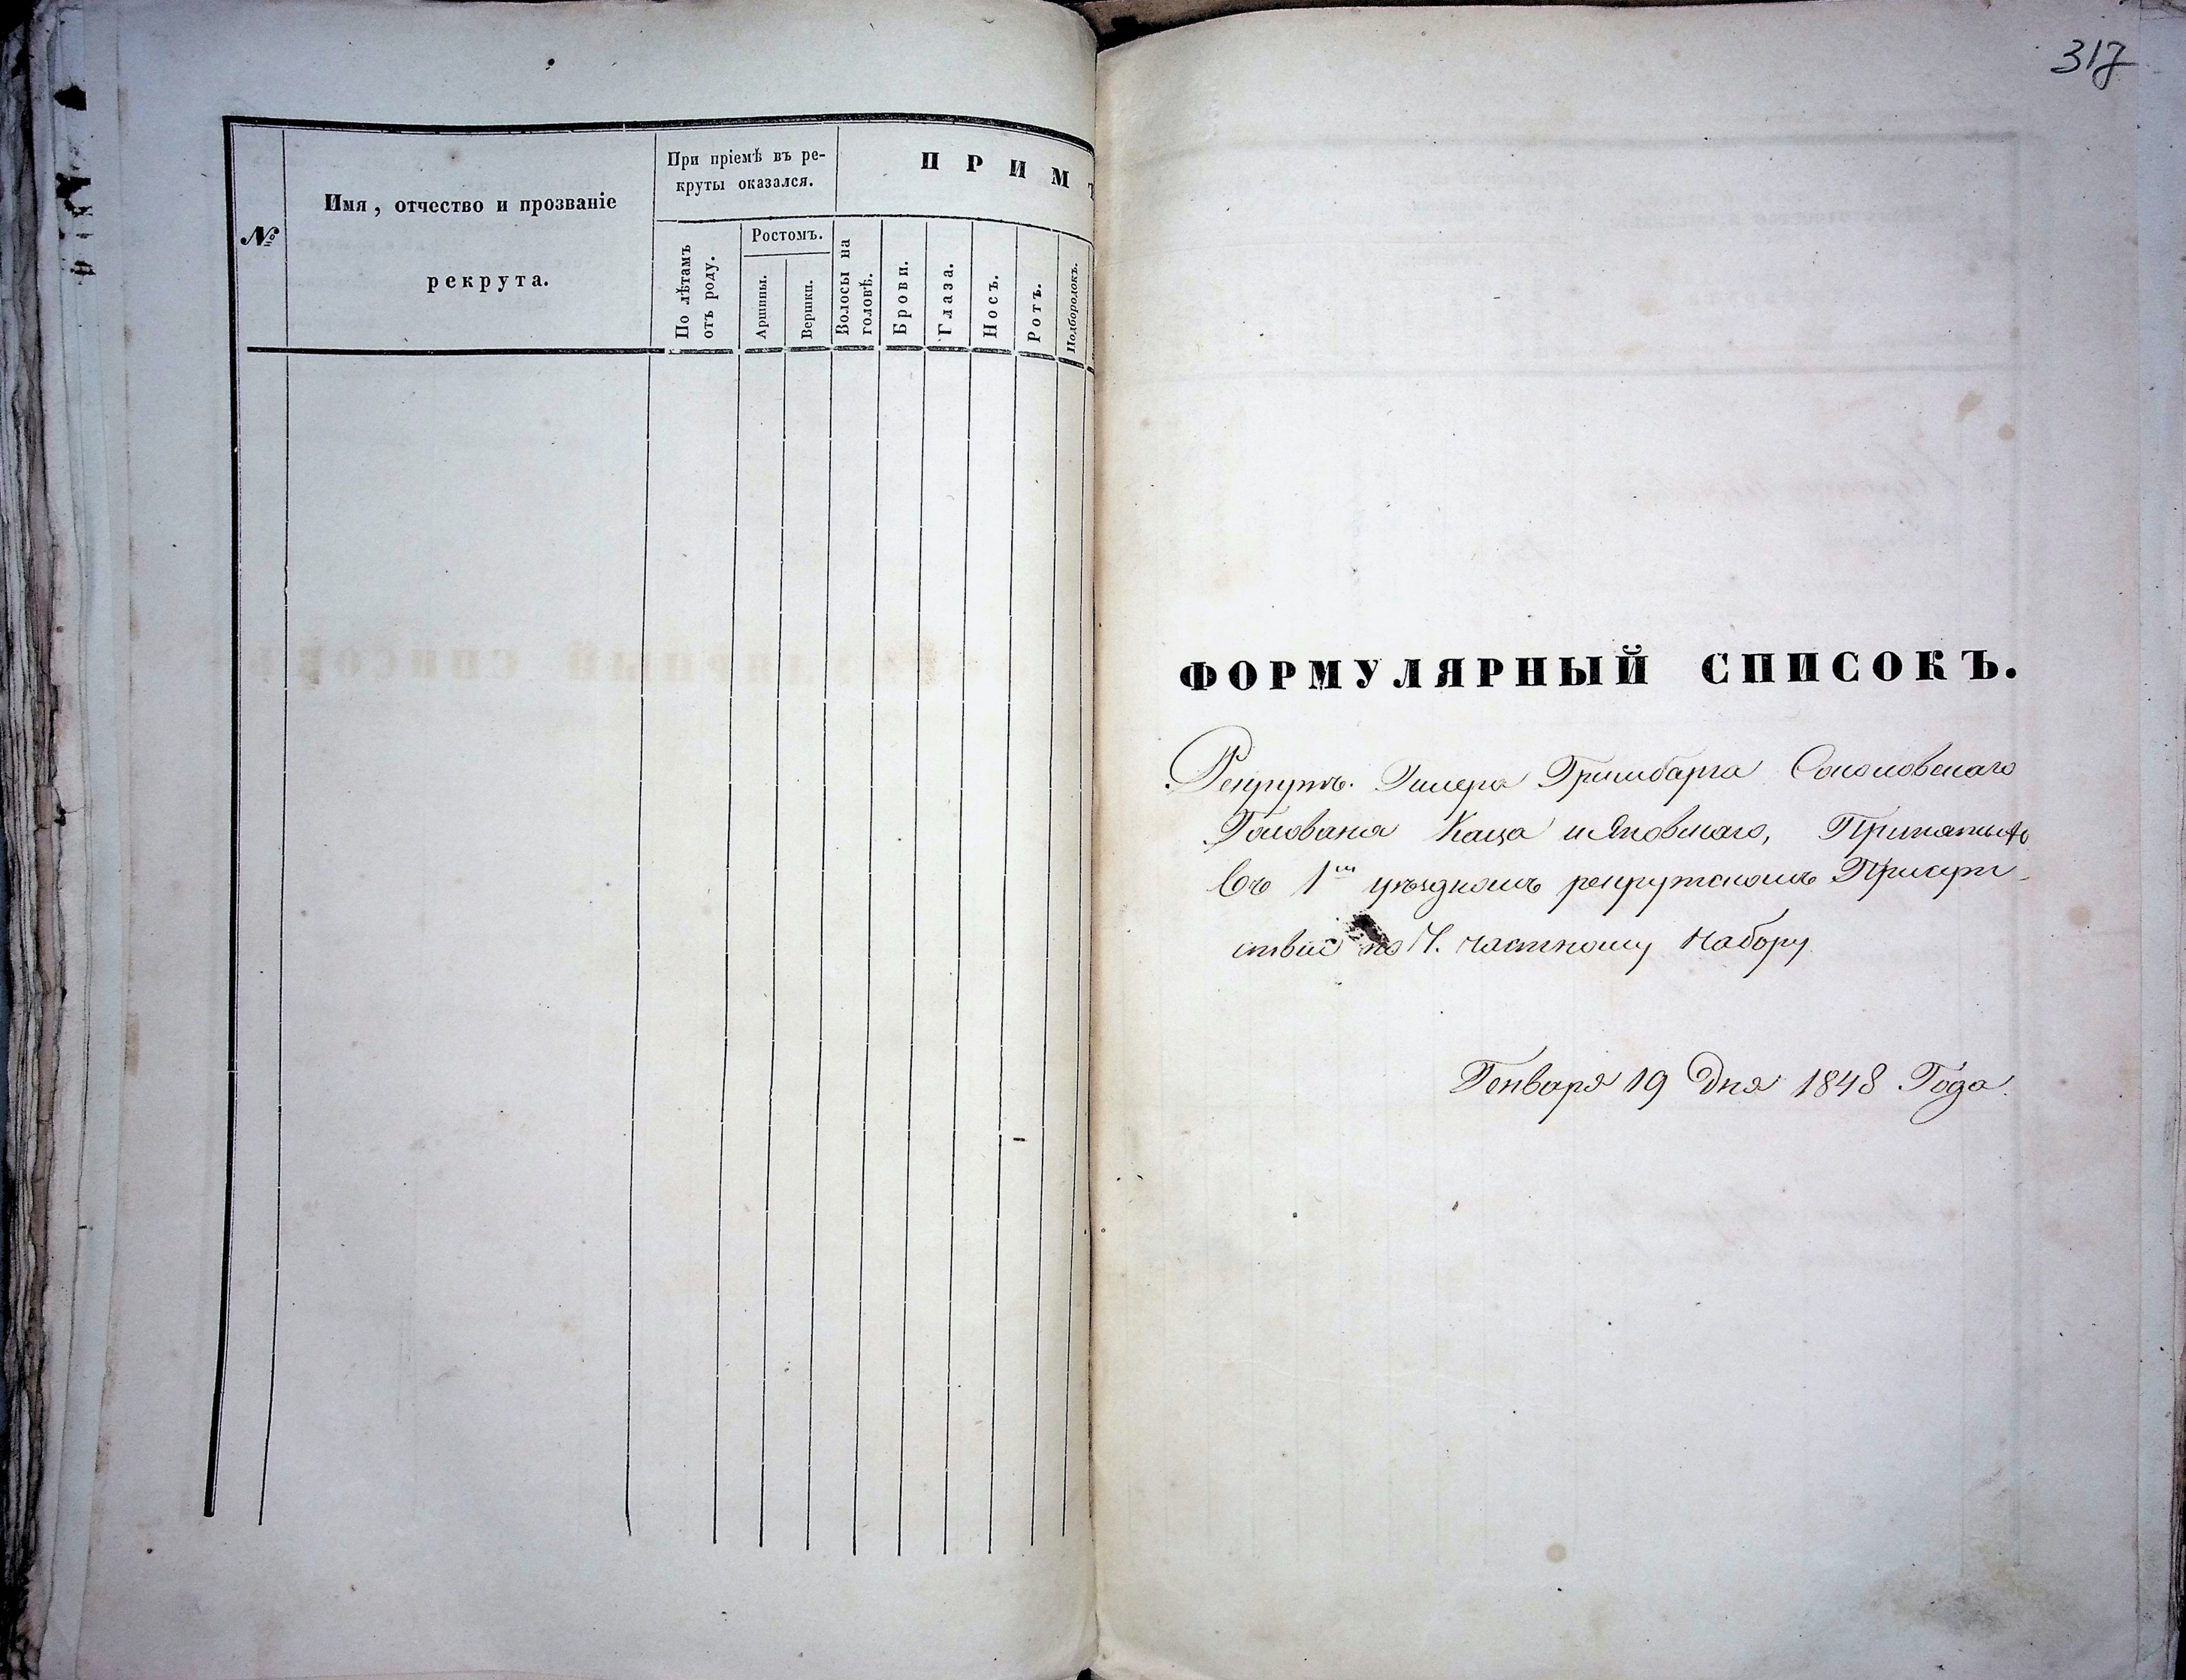 №
Имя, отчество и прозваніе
рекрута.
При пріемѣ въ ре-
круты оказался.
По лѣтамъ
отъ роду.
Ростомъ.
Аршины.
Вершки.
ПРИМ
Волосы на
головѣ.
Брови.
Глаза.
Носъ.
Ротъ.
Подбородокъ.
317
ФОРМУЛЯРНЫЙ СПИСОКЪ.
Рекрутъ. Гримбарга Соколовскаго
Голована Каца и Яновскаго, Принятыхъ
въ 1ᵐ уѣздномъ рекрутскомъ Присут-
ствіе по 7. частному Набору
Генваря 19 Дня 1848 Года.